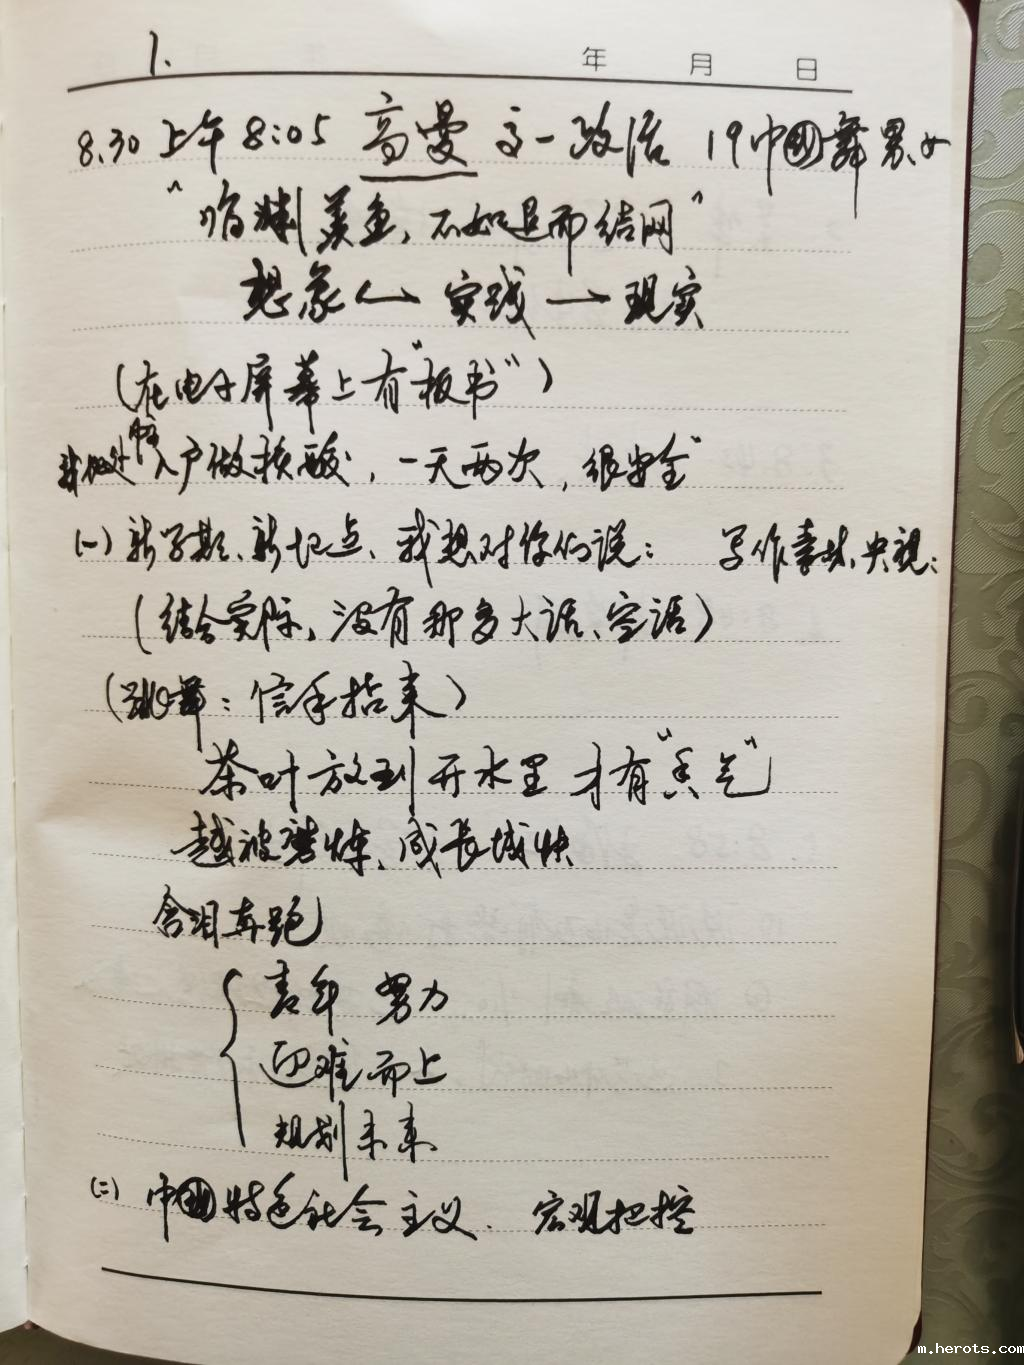 1.
年 月 日
8.30 上午 8:05 高曼 高一政治 19中国舞男、女
"临渊羡鱼,不如退而结网"
想象 ← → 实践 → 现实
(在电子屏幕上有"板书")
入户做核酸,一天两次,很安全"
(一) 新学期、新起点、我想对你们说: 写作素材、央视:
(结合实际,没有那多大话、空话)
(跳舞:信手拈来)
茶叶放到开水里才有"香气"
越被磨炼、成长越快
含泪奔跑
青年 努力
迎难而上
规划未来
(二) 中国特色社会主义. 宏观把控
m.herots.com